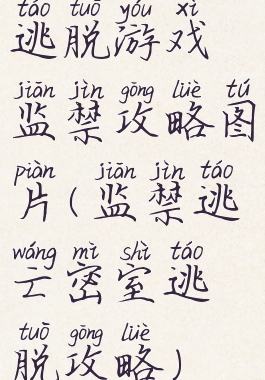 táo tuō yóu xì
逃脱游戏
jiān jìn gōng lüè tú
监禁攻略图
piàn jiān jìn táo
片(监禁逃
wáng mì shì táo
亡密室逃
tuō gōng lüè
脱攻略)